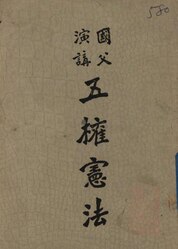 580
國父
演講
五權憲法